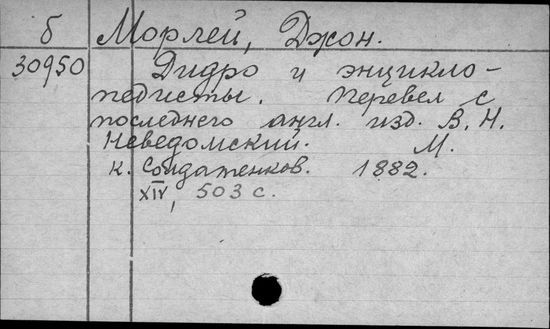 б Морлей, Джон.
30950 Дидро и энцикло-
педисты. Перевел с
последнего англ. изд. В. Н.
Неведомский. М.
К. Солдатенков. 1882.
XIV, 503 с.